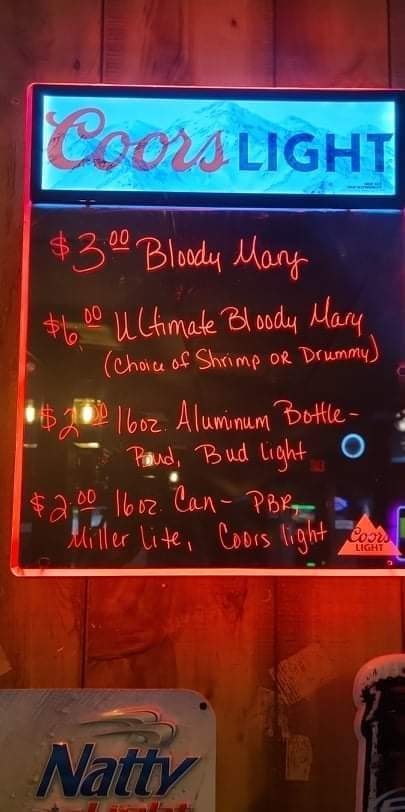 Coors LIGHT
$3.00 Bloody Mary
$6.00 Ultimate Bloody Mary
(Choice of Shrimp OR Drummy)
$2.00 16oz. Aluminum Bottle-
Bud, Bud Light
$2.00 16oz. Can- PBR,
Miller Lite, Coors light
Coors
LIGHT
Natty